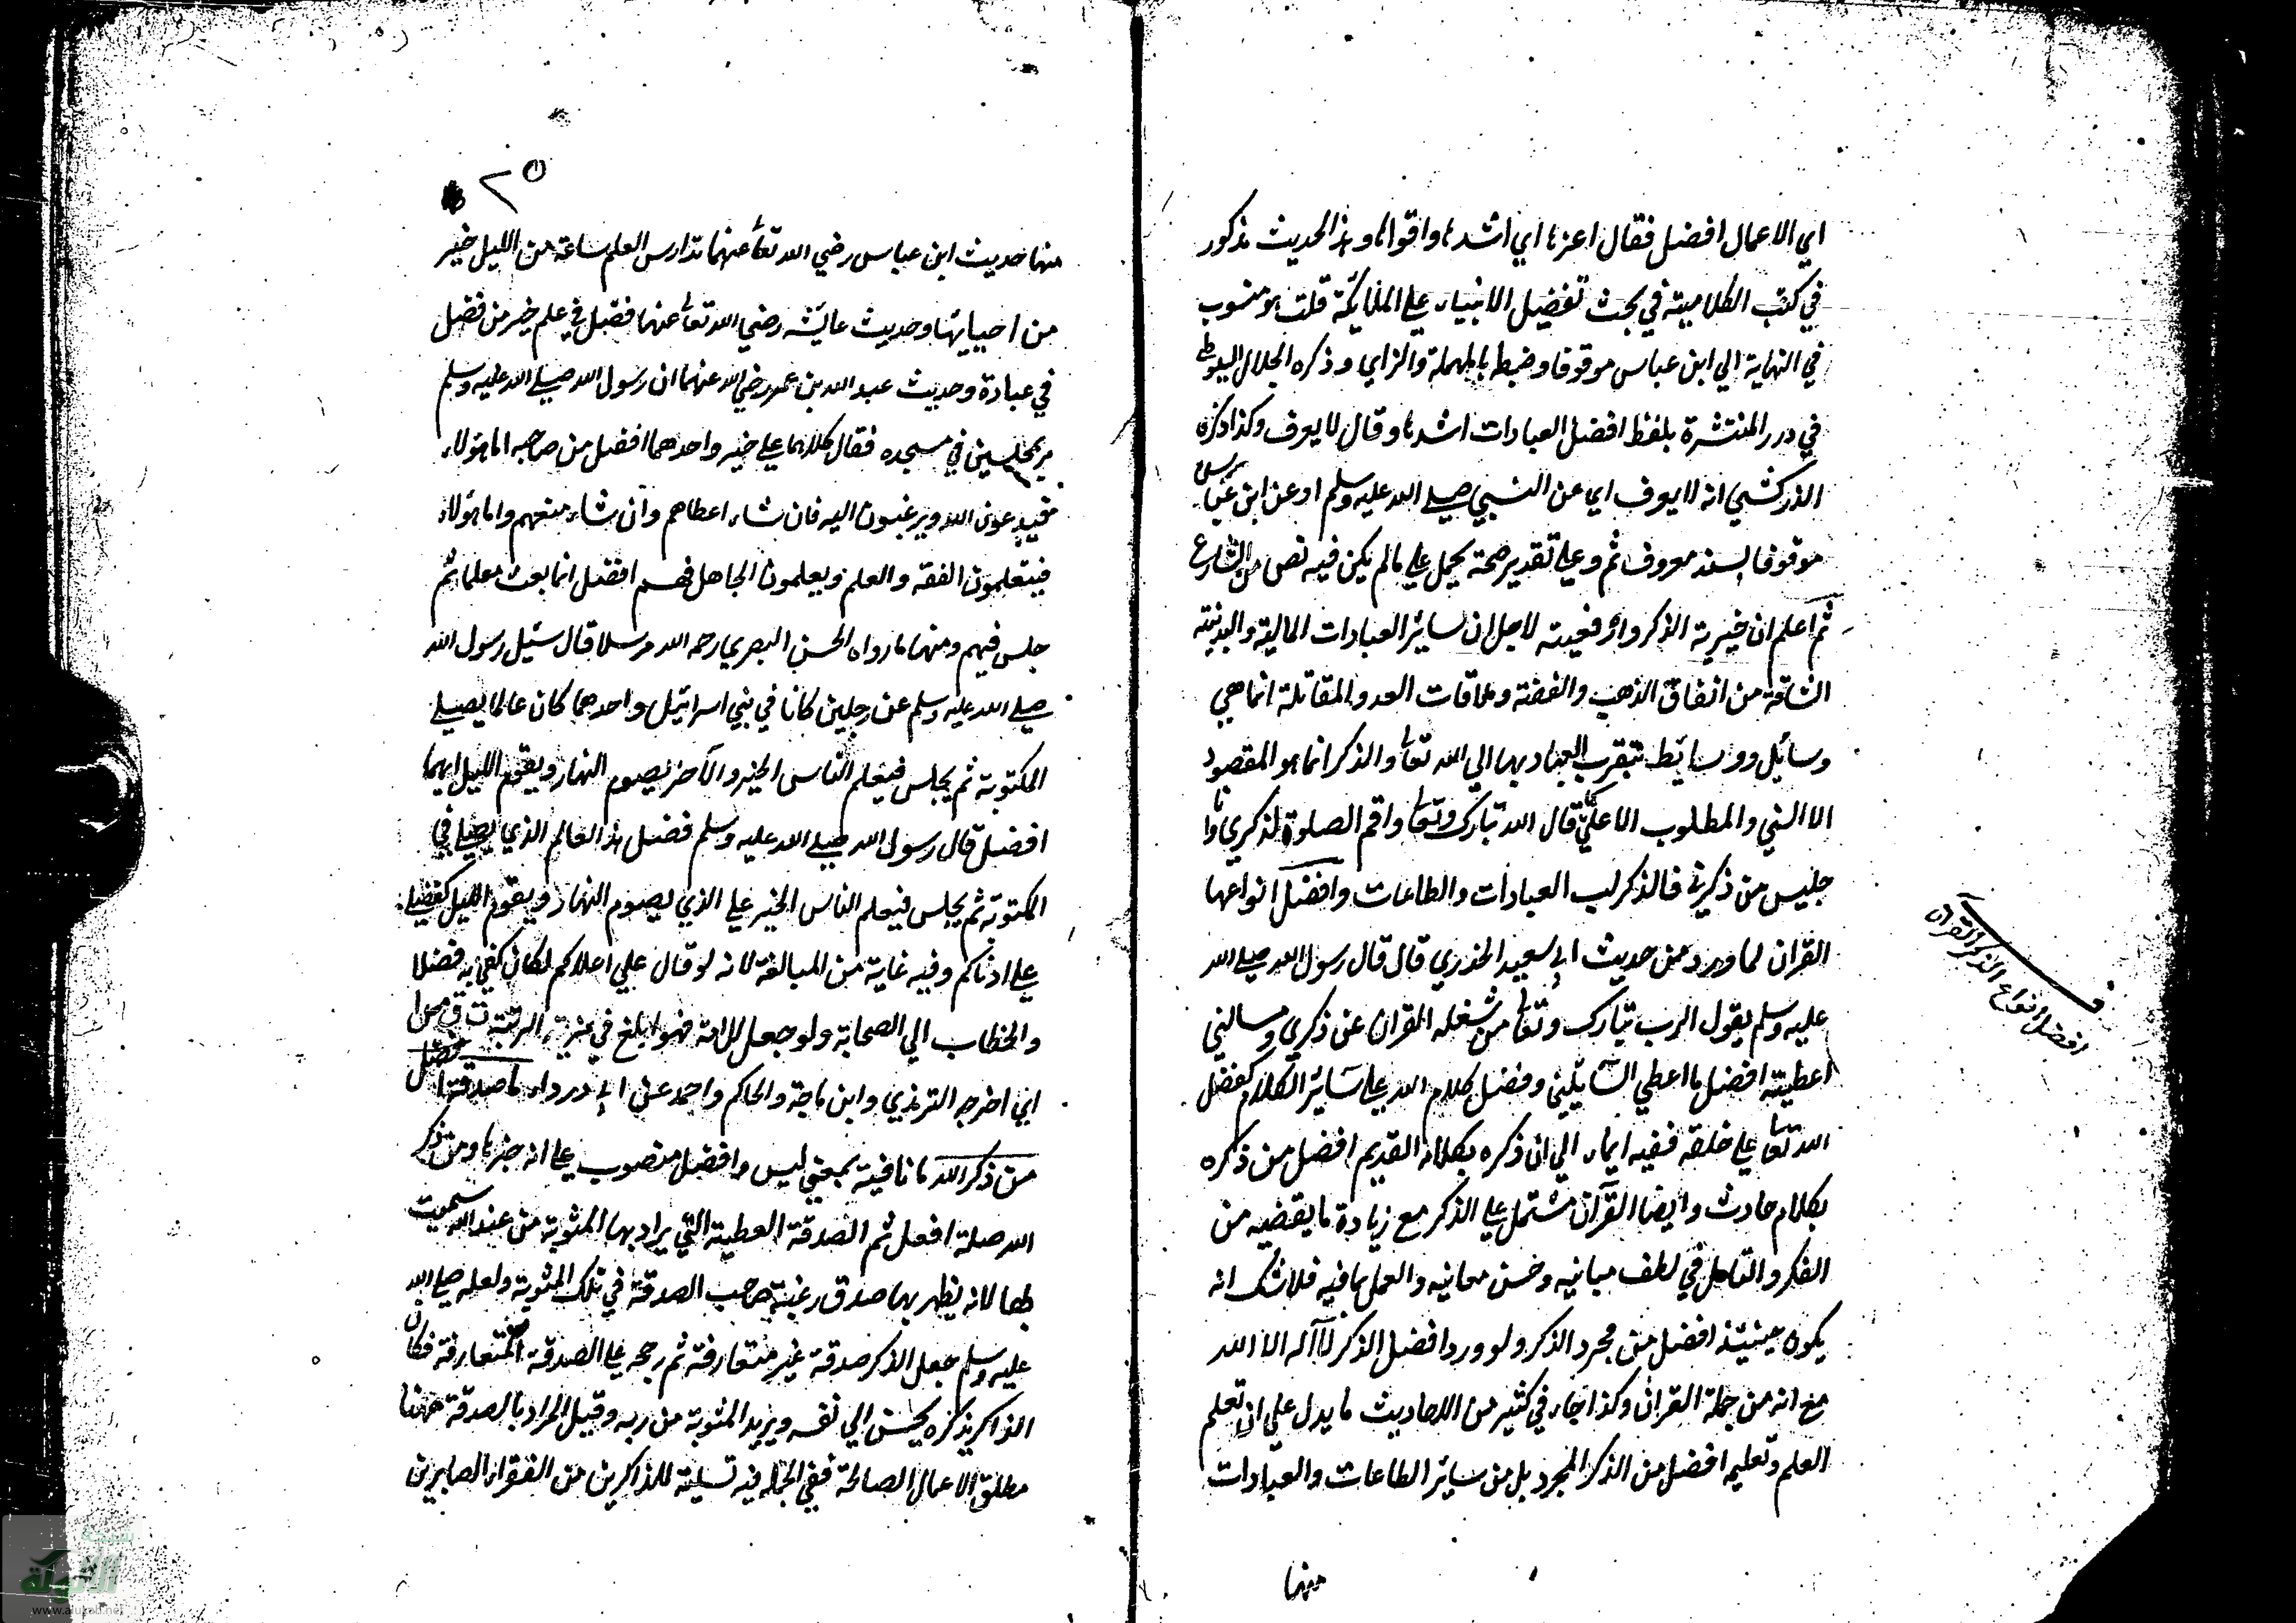 اي الاعمال افضل فقال احمزها اي اشدها واقواها وهذا الحديث مذكور
في كتب الكلامية في بحث تفضيل الانبياء علي الملايكة قلت هو منسوب
في النهاية الي ابن عباس موقوفا وضبط بالمهملة والزاي وذكره الجلال السيوطي
في درر المنتشرة بلفظ افضل العبادات اشدها وقال لا يعرف وكذا ذكره
الذركشي انه لا يعرف اي عن النبي صلي الله عليه وسلم او عن ابن عباس
موقوفا بسند معروف ثم وعلي تقدير صحته يحمل علي ما لم يكن فيه نص من الشارع
ثم اعلم ان خيرية الذكر وارفعيته لاجل ان ساير العبادات المالية والبدنية
الشاقة من انفاق الذهب والفضة وملاقات العدو والمقاتلة انما هي
وسائل ووسايط يتقرب العباد بها الي الله تعالى والذكر انما هو المقصود
الاسني والمطلوب الاعلي قال الله تبارك وتعالى واقم الصلوة لذكري وانا
جليس من ذكرني فالذكر لب العبادات والطاعات وافضل انواعها
القران لما ورد من حديث ابي سعيد الخدري قال قال رسول الله صلي الله
عليه وسلم يقول الرب تبارك وتعالى من شغله القران عن ذكري ومسالتي
اعطيته افضل ما اعطي السايلين وفضل كلام الله علي سائر الكلام كفضل
الله تعالى علي خلقه ففيه ايماء الي ان ذكره بكلامه القديم افضل من ذكره
بكلام حادث وايضا القرآن مشتمل علي الذكر مع زيادة ما يقتضيه من
الفكر والتامل في لطف مبانيه وحسن معانيه والعمل بما فيه فلا شك انه
يكون حينئذ افضل من مجرد الذكر ولو ورد افضل الذكر لا آله الا الله
مع انه من جملة القران وكذا جاء في كثير من الاحاديث ما يدل علي ان تعلم
العلم وتعليمه افضل من الذكر المجرد بل من سائر الطاعات والعبادات
منها
افضل انواع الذكر القران
٢٥
منها حديث ابن عباس رضي الله تعالى عنهما تدارس العلم ساعة من الليل خير
من احيايها وحديث عايشه رضي الله تعالى عنها فضل في علم خير من فضل
في عبادة وحديث عبد الله بن عمر رضي الله عنهما ان رسول الله صلي الله عليه وسلم
مر بمجلسين في مسجده فقال كلاهما علي خير واحدهما افضل من صاحبه اما هؤلاء
فيدعون الله ويرغبون اليه فان شاء اعطاهم وان شاء منعهم واما هؤلاء
فيتعلمون الفقه والعلم ويعلمون الجاهل فهم افضل انما بعثت معلما ثم
جلس فيهم ومنها ما رواه الحسن البصري رحمه الله مرسلا قال سئيل رسول الله
صلي الله عليه وسلم عن رجلين كانا في بني اسرائيل واحدهما كان عالما يصلي
المكتوبة ثم يجلس فيعلم الناس الخير والآخر يصوم النهار ويقوم الليل ايهما
افضل قال رسول الله صلي الله عليه وسلم فضل هذا العالم الذي يصلي في
المكتوبة ثم يجلس فيعلم الناس الخير علي الذي يصوم النهار ويقوم الليل كفضلي
علي ادناكم وفيه غاية من المبالغة لانه لو قال علي اعلاكم لكان كفي به فضلا
والخطاب الي الصحابة ولو جعل للامة فهو ابلغ في مزية الرتبة ت ق مس ا
اي اخرجه الترمذي وابن ماجة والحاكم واحمد عن ابي درداء ما صدقة افضل
من ذكر الله ما نافية بمعني ليس وافضل منصوب علي انه خبرها ومن ذكر
الله صلة افعل ثم الصدقة العطية التي يراد بها المثوبة من عند الله سميت
بها لانه يظهر بها صدق رغبة صاحب الصدقة في تلك المثوبة ولعله صلي الله
عليه وسلم جعل الذكر صدقة غير متعارفة ثم رجحه علي الصدقة المتعارفة فكان
الذاكر بذكره يحسن الي نفسه ويريد المثوبة من ربه وقيل المراد بالصدقة ههنا
مطلق الاعمال الصالحة ففي الجملة فيه تسلية للذاكرين من الفقراء الصابرين
شبكة
الألوكة
www.alukah.net